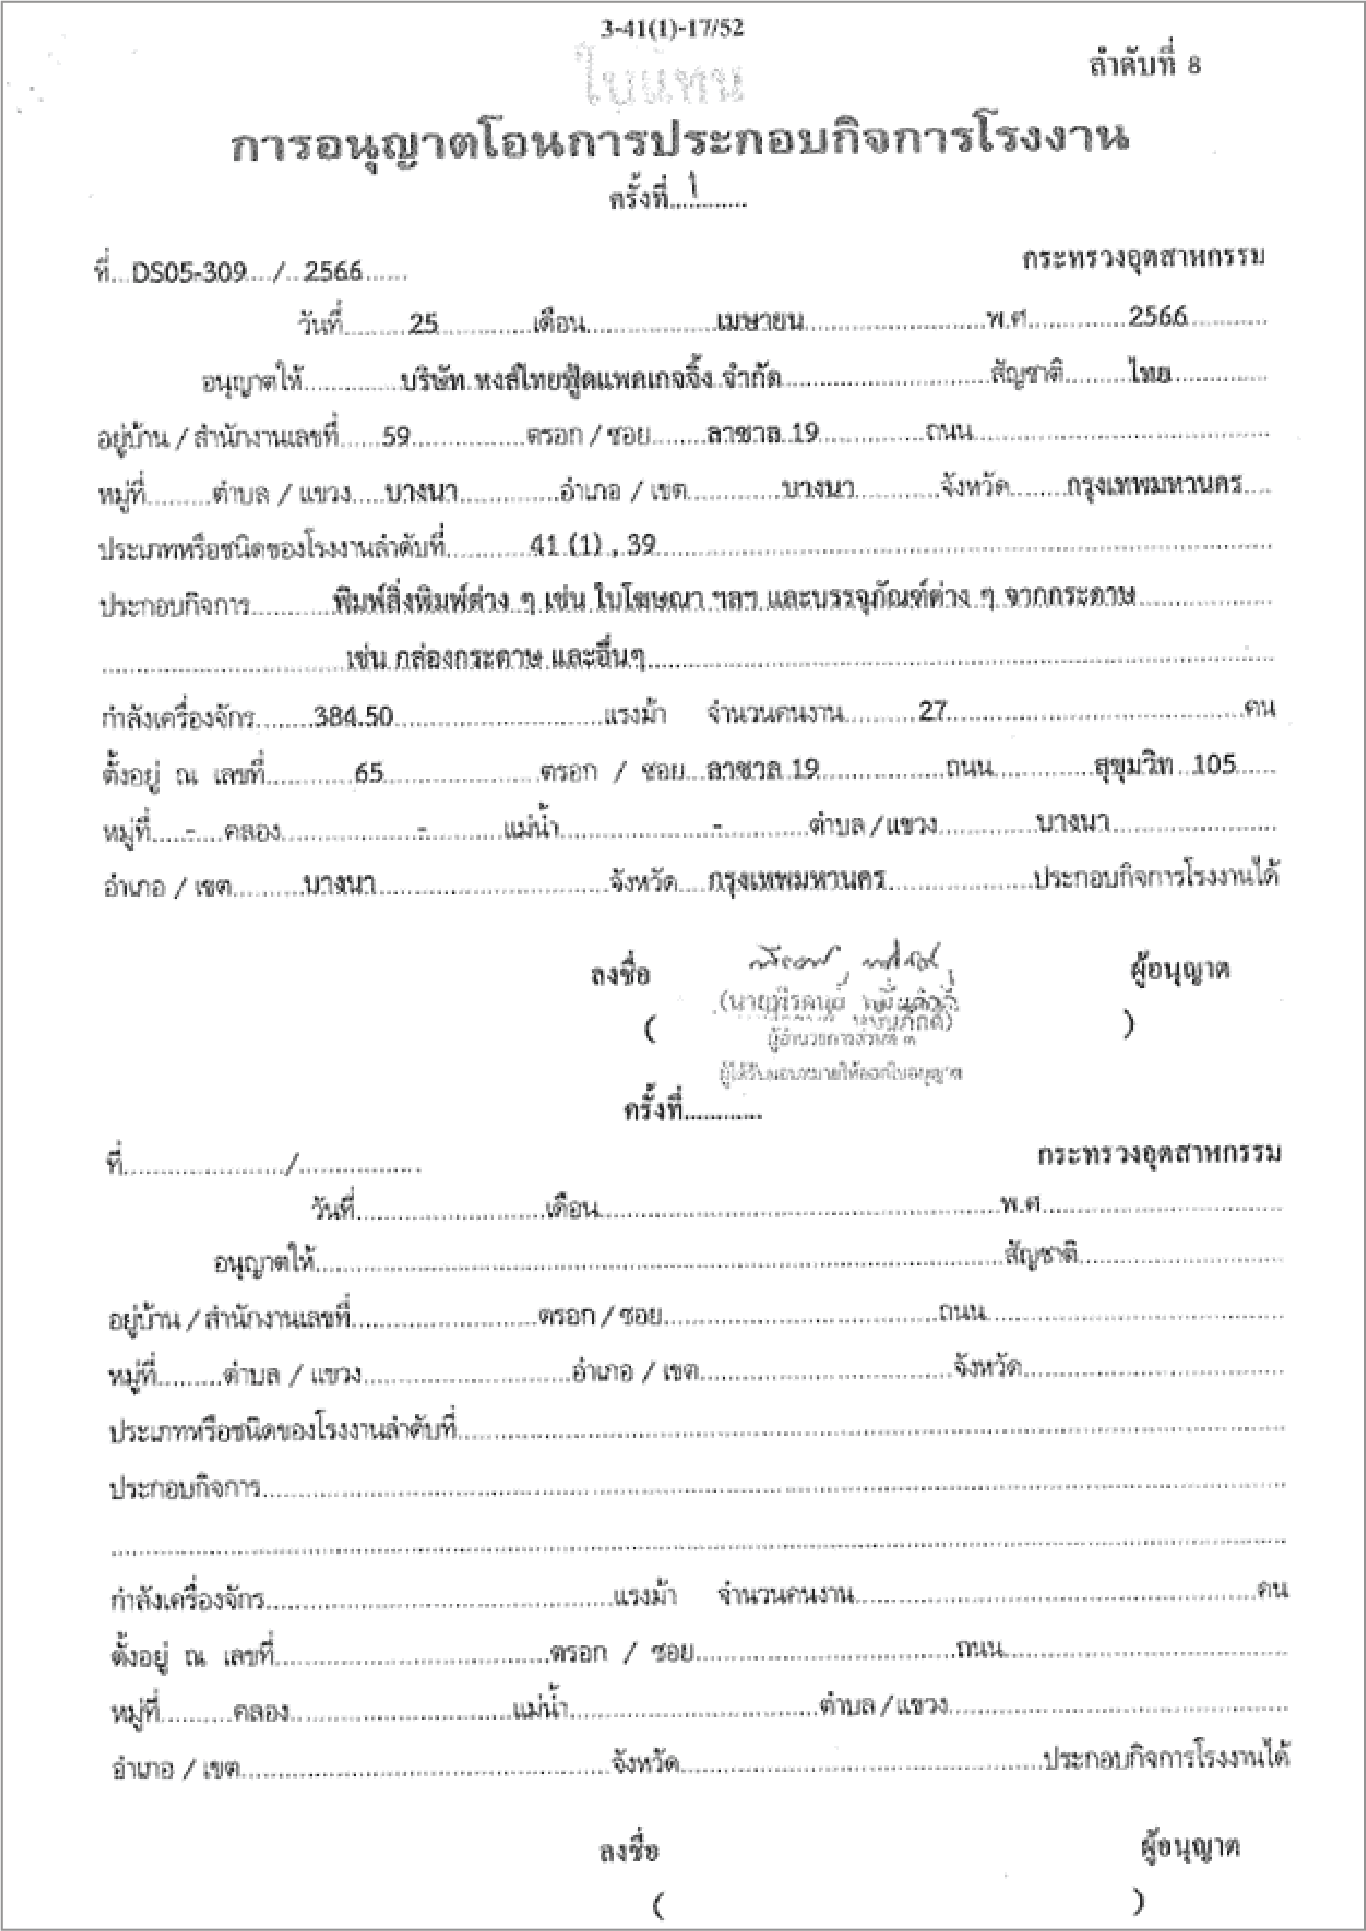 3-41(1)-17/52
ใบแทน
ลำดับที่ 8
การอนุญาตโอนการประกอบกิจการโรงงาน
ครั้งที่ 1
กระทรวงอุตสาหกรรม
ที่ DS05-309 / 2566
วันที่ 25 เดือน เมษายน พ.ศ. 2566
อนุญาตให้ บริษัท หงส์ไทยฟู้ดแพคเกจจิ้ง จำกัด สัญชาติ ไทย
อยู่บ้าน / สำนักงานเลขที่ 59 ตรอก / ซอย ลาซาล 19 ถนน
หมู่ที่ ตำบล / แขวง บางนา อำเภอ / เขต บางนา จังหวัด กรุงเทพมหานคร
ประเภทหรือชนิดของโรงงานลำดับที่ 41 (1) , 39
ประกอบกิจการ พิมพ์สิ่งพิมพ์ต่าง ๆ เช่น ใบโฆษณา ฯลฯ และบรรจุภัณฑ์ต่าง ๆ จากกระดาษ
เช่น กล่องกระดาษ และอื่นๆ
กำลังเครื่องจักร 384.50 แรงม้า จำนวนคนงาน 27 คน
ตั้งอยู่ ณ เลขที่ 65 ตรอก / ซอย ลาซาล 19 ถนน สุขุมวิท 105
หมู่ที่ - คลอง - แม่น้ำ - ตำบล / แขวง บางนา
อำเภอ / เขต บางนา จังหวัด กรุงเทพมหานคร ประกอบกิจการโรงงานได้
ลงชื่อ ผู้อนุญาต
( )
ผู้ได้รับมอบหมายให้ออกใบอนุญาต
ครั้งที่
กระทรวงอุตสาหกรรม
ที่ /
วันที่ เดือน พ.ศ.
อนุญาตให้ สัญชาติ
อยู่บ้าน / สำนักงานเลขที่ ตรอก / ซอย ถนน
หมู่ที่ ตำบล / แขวง อำเภอ / เขต จังหวัด
ประเภทหรือชนิดของโรงงานลำดับที่
ประกอบกิจการ
กำลังเครื่องจักร แรงม้า จำนวนคนงาน คน
ตั้งอยู่ ณ เลขที่ ตรอก / ซอย ถนน
หมู่ที่ คลอง แม่น้ำ ตำบล / แขวง
อำเภอ / เขต จังหวัด ประกอบกิจการโรงงานได้
ลงชื่อ ผู้อนุญาต
( )